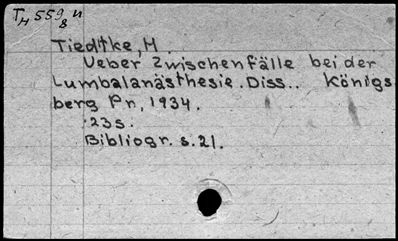 TH 559/8 u
Tiedtke, H.
Ueber Zwischenfälle bei der
Lumbalanästhesie. Diss.. Königs
berg Pr, 1934.
23s.
Bibliogr. s. 21.